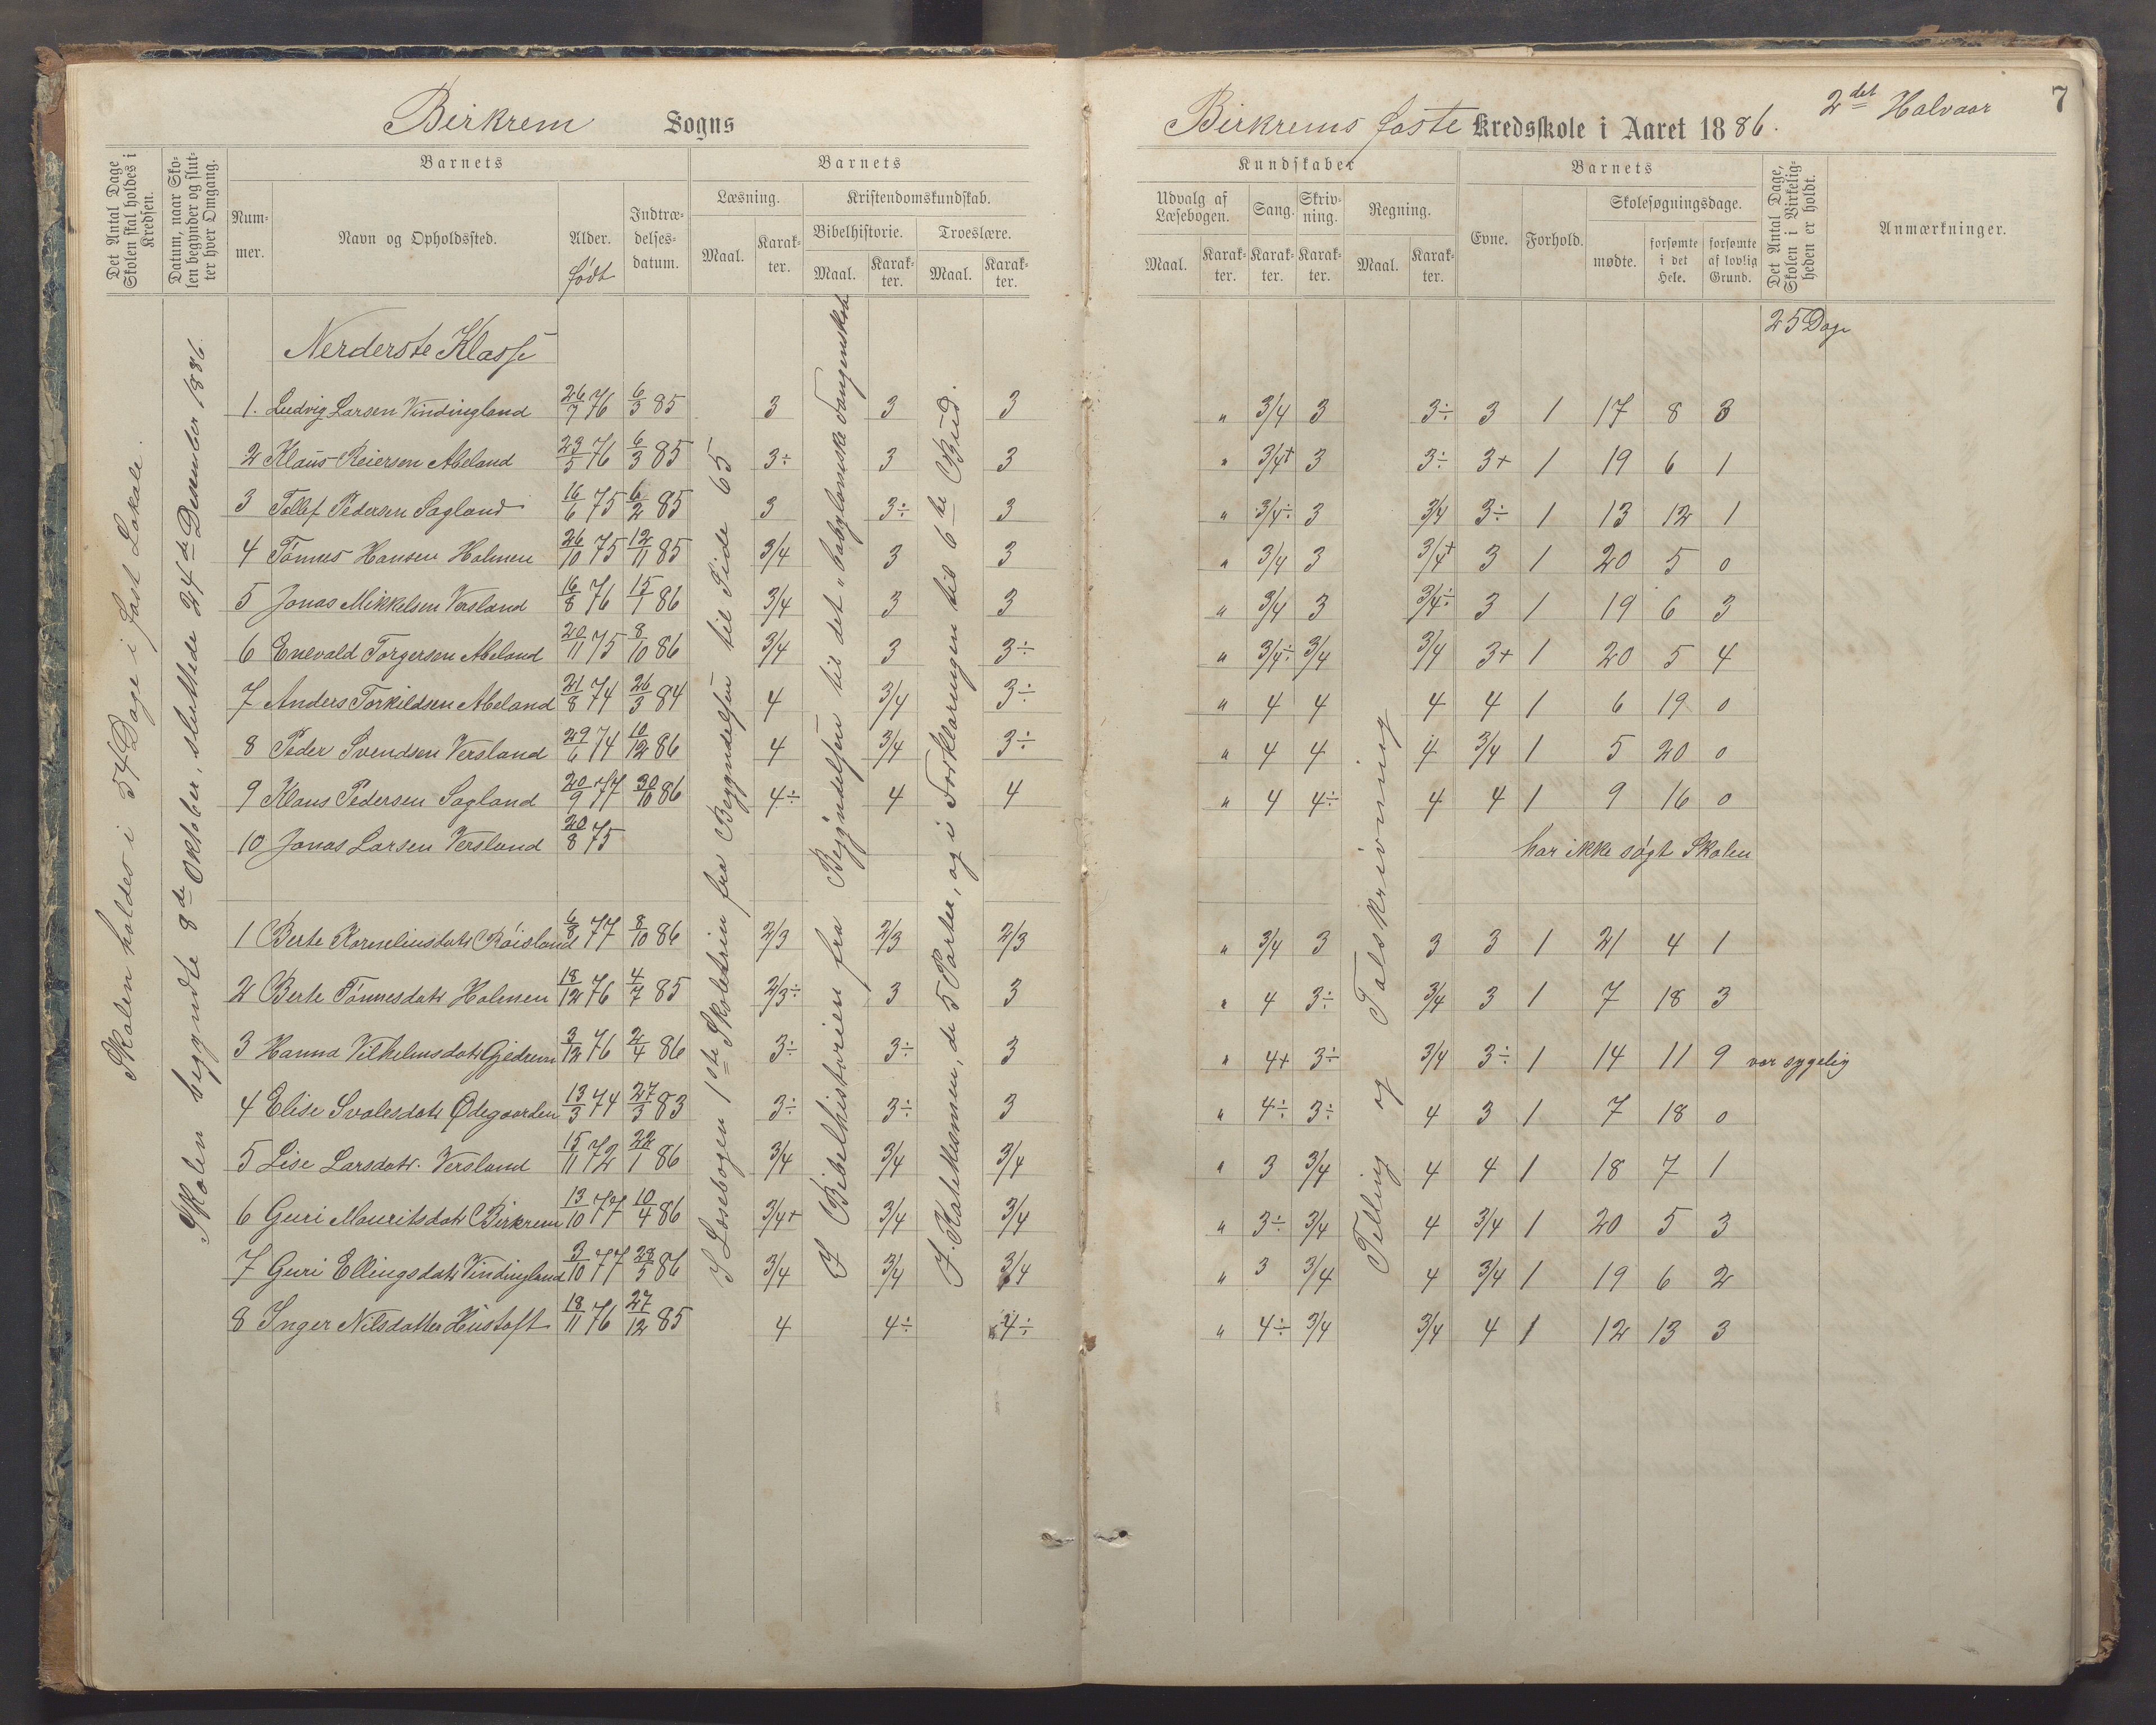 Birkrem Sogns
Det Antal Dage Skolen skal holdes i Kredsen.
Datum, naar Skolen begynder og slutter hver Omgang.
Barnets
Nummer.
Navn og Opholdssted.
Alder.
født
Indtrædelsesdatum.
Barnets
Læsning.
Maal.
Karakter.
Kristendomskundskab.
Bibelhistorie.
Maal.
Karakter.
Troeslære.
Maal.
Karakter.
Skolen holdes i 54 Dage i fast Lokale.
Skolen begyndte 8de Oktober, sluttede 24de Desember 1886.
I Læsebogen 1ste Skoletrin fra Begyndelsen til Side 65
I Bibelhistorien fra Begyndelsen til det "babylonske Fangenskab
I Katekismen, de 5 Parter, og i Forklaringen til 6te Bud.
Nerderste Klasse
1. Ludvig Larsen Vindingland 26/7 76 6/3 85 3 3 3
2 Klaus Reiersen Abeland 23/5 76 6/3 85 3÷ 3 3
3 Tollef Pedersen Sagland 16/6 75 6/2 85 3 3÷ 3
4 Tønnes Hansen Holmen 26/10 75 12/11 85 3/4 3 3
5 Jonas Mikkelsen Versland 16/8 76 15/1 86 3/4 3 3
6 Enevald Torgersen Abeland 20/11 75 8/10 86 3/4 3 3÷
7 Anders Torkildsen Abeland 21/8 74 26/3 84 4 3/4 3÷
8 Peder Svendsen Versland 29/6 74 10/12 86 4 3/4 3÷
9 Klaus Pedersen Sagland 20/9 77 30/10 86 4÷ 4 4
10 Jonas Larsen Versland 20/8 75
1 Berte Korneliusdatr Røisland 6/3 77 8/10 86 2/3 2/3 2/3
2 Berte Tønnesdatr Holmen 18/12 76 4/7 85 2/3÷ 3 3
3 Hanna Vilhelmsdatr Gjedrem 3/12 76 2/4 86 3÷ 3÷ 3
4 Elise Svalesdatr Ødegaarden 13/3 74 27/3 83 3÷ 3÷ 3
5 Lise Larsdatr. Versland 15/11 72 22/1 86 3/4 3/4 3/4
6 Guri Mauritsdatr Birkrem 13/10 77 10/4 86 3/4+ 3/4 3/4
7 Guri Ellingsdatr Vindingland 3/10 77 28/5 86 3/4 3/4 3/4
8 Inger Nilsdatter Hustoft 18/11 76 27/12 85 4 4÷ 4÷
Birkrems faste Kredsskole i Aaret 1886. 2det Halvaar 7
Kundskaber
Udvalg af Læsebogen.
Maal.
Karakter.
Sang.
Karakter.
Skrivning.
Karakter.
Regning.
Maal.
Karakter.
Barnets
Evne.
Forhold.
Skolesøgningsdage.
mødte.
forsømte i det Hele.
forsømte af lovlig Grund.
Det Antal Dage, Skolen i Virkeligheden er holdt.
Anmærkninger.
25 Dage
Telling og Talskrivning
" 3/4 3 3÷ 3 1 17 8 3
" 3/4+ 3 3÷ 3+ 1 19 6 1
" 3/4÷ 3 3/4 3÷ 1 13 12 1
" 3/4 3 3/4+ 3 1 20 5 0
" 3/4 3 3/4÷ 3 1 19 6 3
" 3/4÷ 3/4 3/4 3+ 1 20 5 4
" 4 4 4 4 1 6 19 0
" 4 4 4 3/4 1 5 20 0
" 4 4÷ 4 4 1 9 16 0
har ikke søgt Skolen
" 3/4 3 3 3 1 21 4 1
" 4 3÷ 3/4 3 1 7 18 3
" 4+ 3÷ 3/4 3÷ 1 14 11 9 var sygelig
" 4÷ 3÷ 4 3 1 7 18 0
" 3 3/4 4 4 1 18 7 1
" 3÷ 3/4 4 3/4 1 20 5 3
" 3 3/4 4 3/4 1 19 6 2
" 4÷ 3/4 3/4 4 1 12 13 3